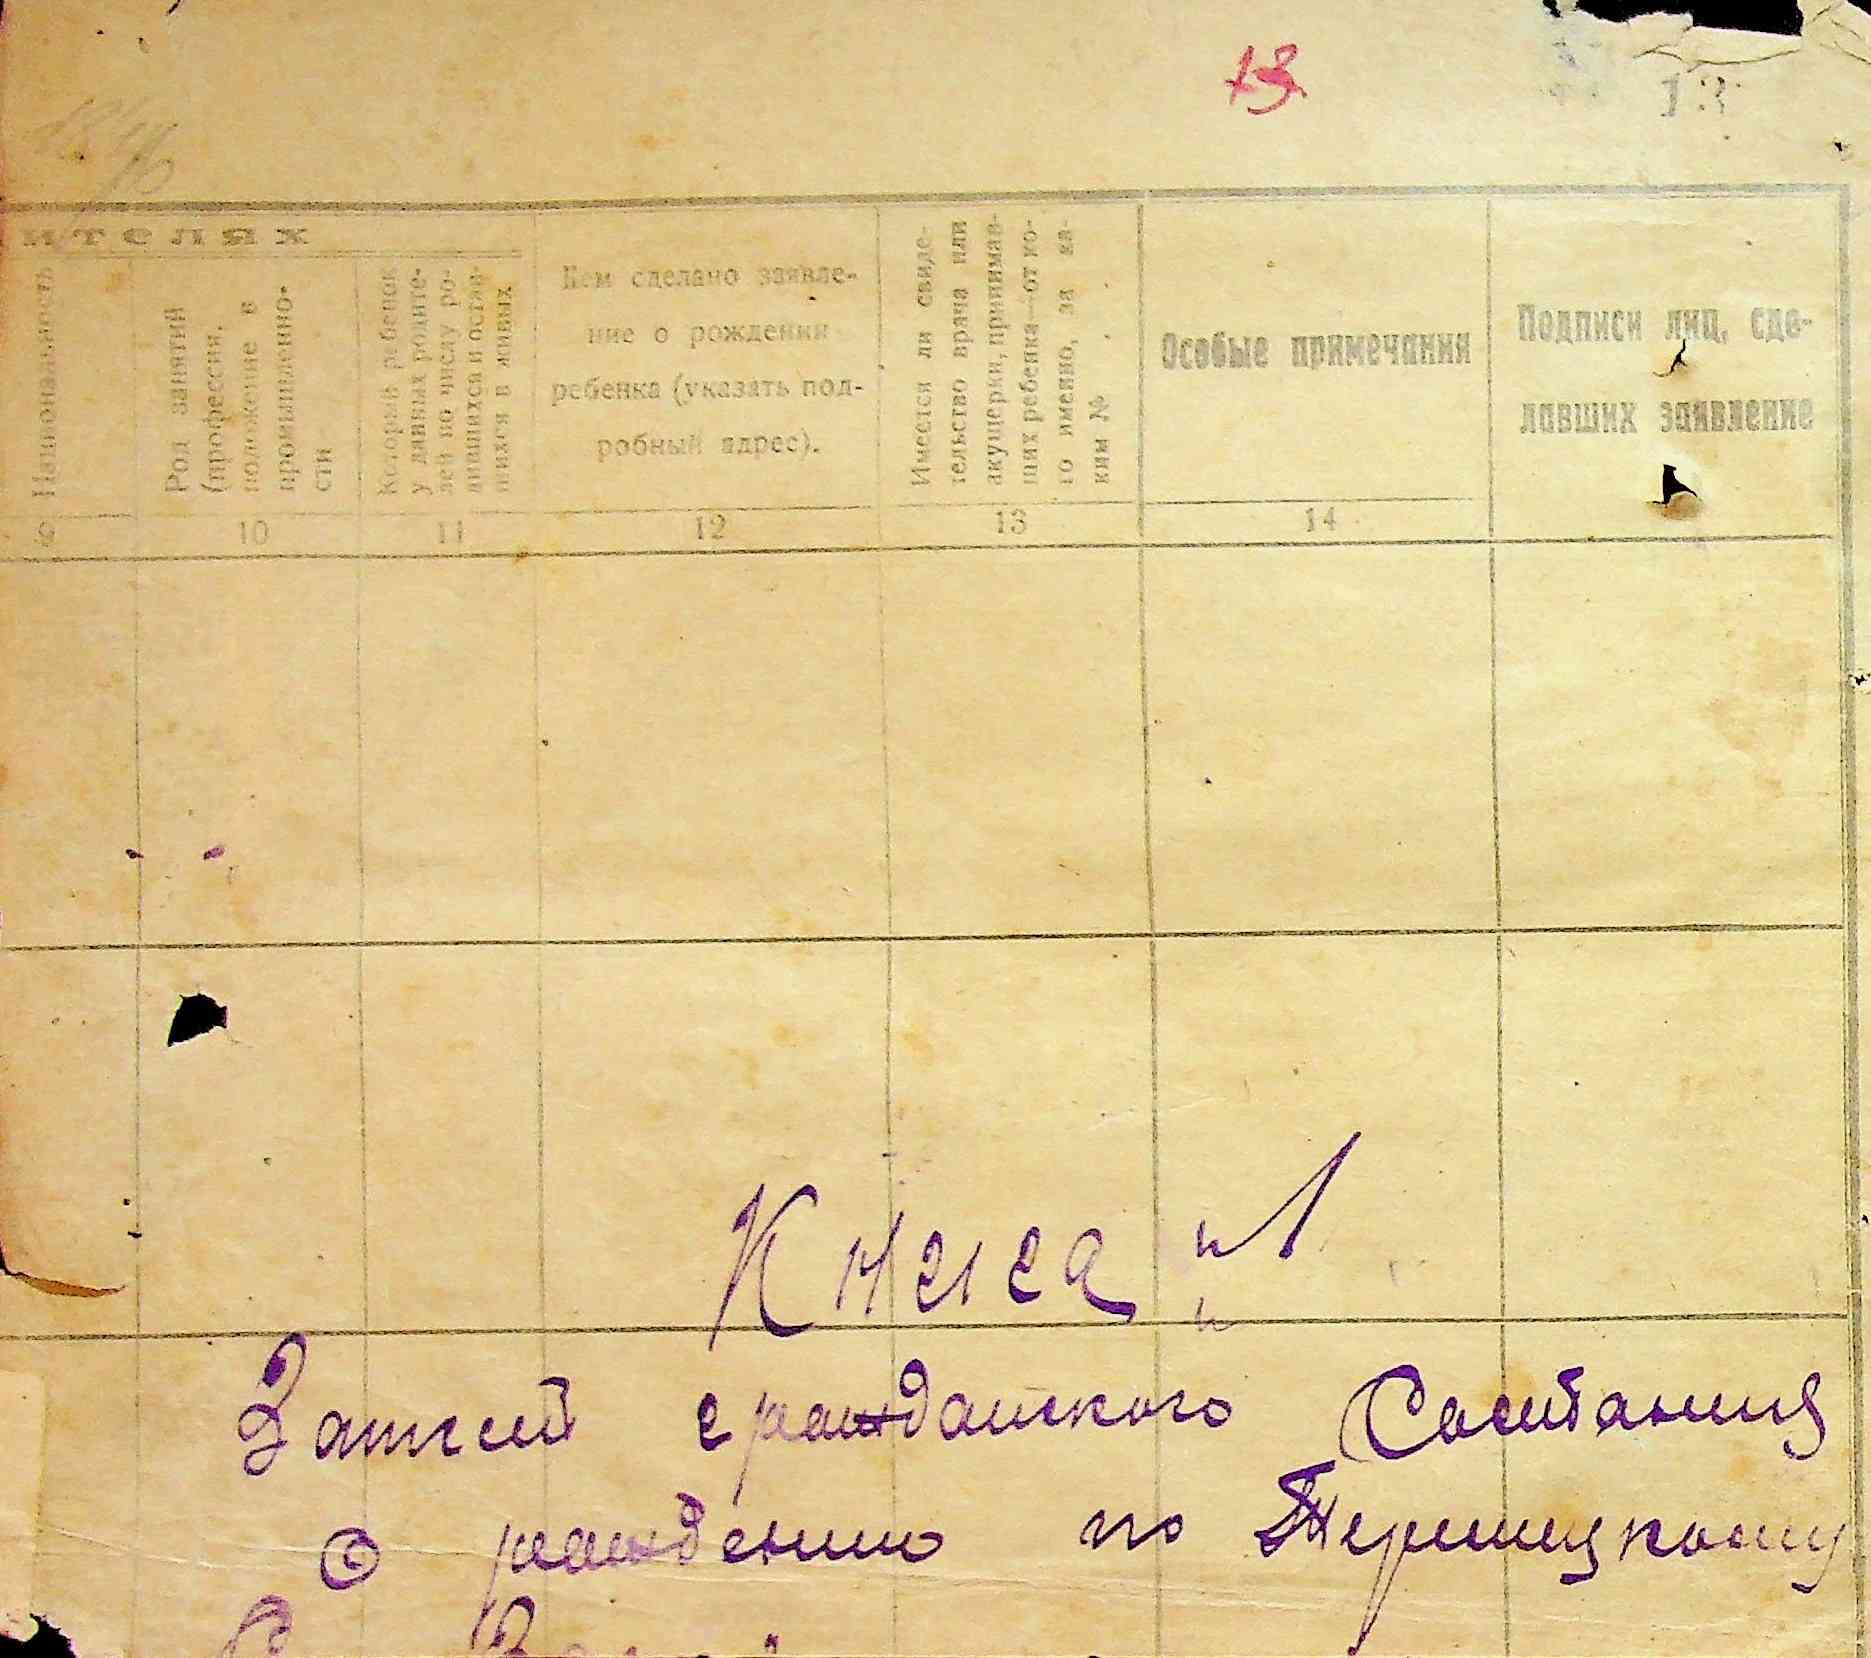 13
13
ителях
Национальность
Род занятий
(профессия,
положение в
промышленно-
сти
Который ребенок
у данных родите-
лей по числу ро-
дившихся и остав-
шихся в живых
Кем сделано заявле-
ние о рождении
ребенка (указать под-
робный адрес).
Имеется ли свиде-
тельство врача или
акушерки, принимав-
ших ребенка—от ко-
го именно, за ка-
ким №
Особые примечания
Подписи лиц, сде-
лавших заявление
9 10 11 12 13 14
Книга
гражданского Состояния
О рождению по